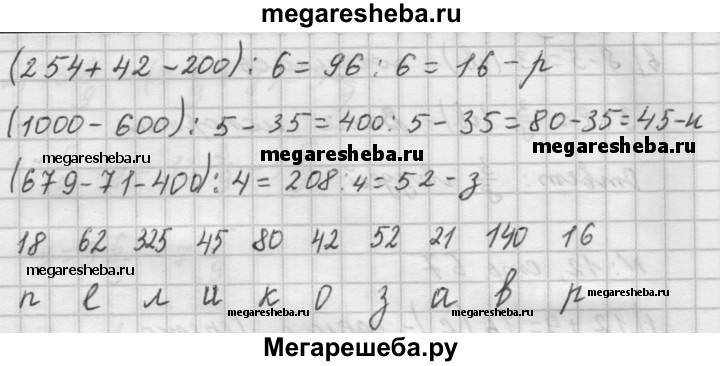 megaresheba.ru
(254+42-200) : 6 = 96 : 6 = 16 - р
(1000 - 600) : 5 - 35 = 400 : 5 - 35 = 80-35 = 45-и
megaresheba.ru megaresheba.ru megaresheba.ru
(679-71-400) : 4 = 208 : 4 = 52 - з
18 62 325 45 80 42 52 21 140 16
megaresheba.ru
п е л и к о з а в р
megaresheba.ru megaresheba.ru megaresheba.ru
Мегарешеба.ру